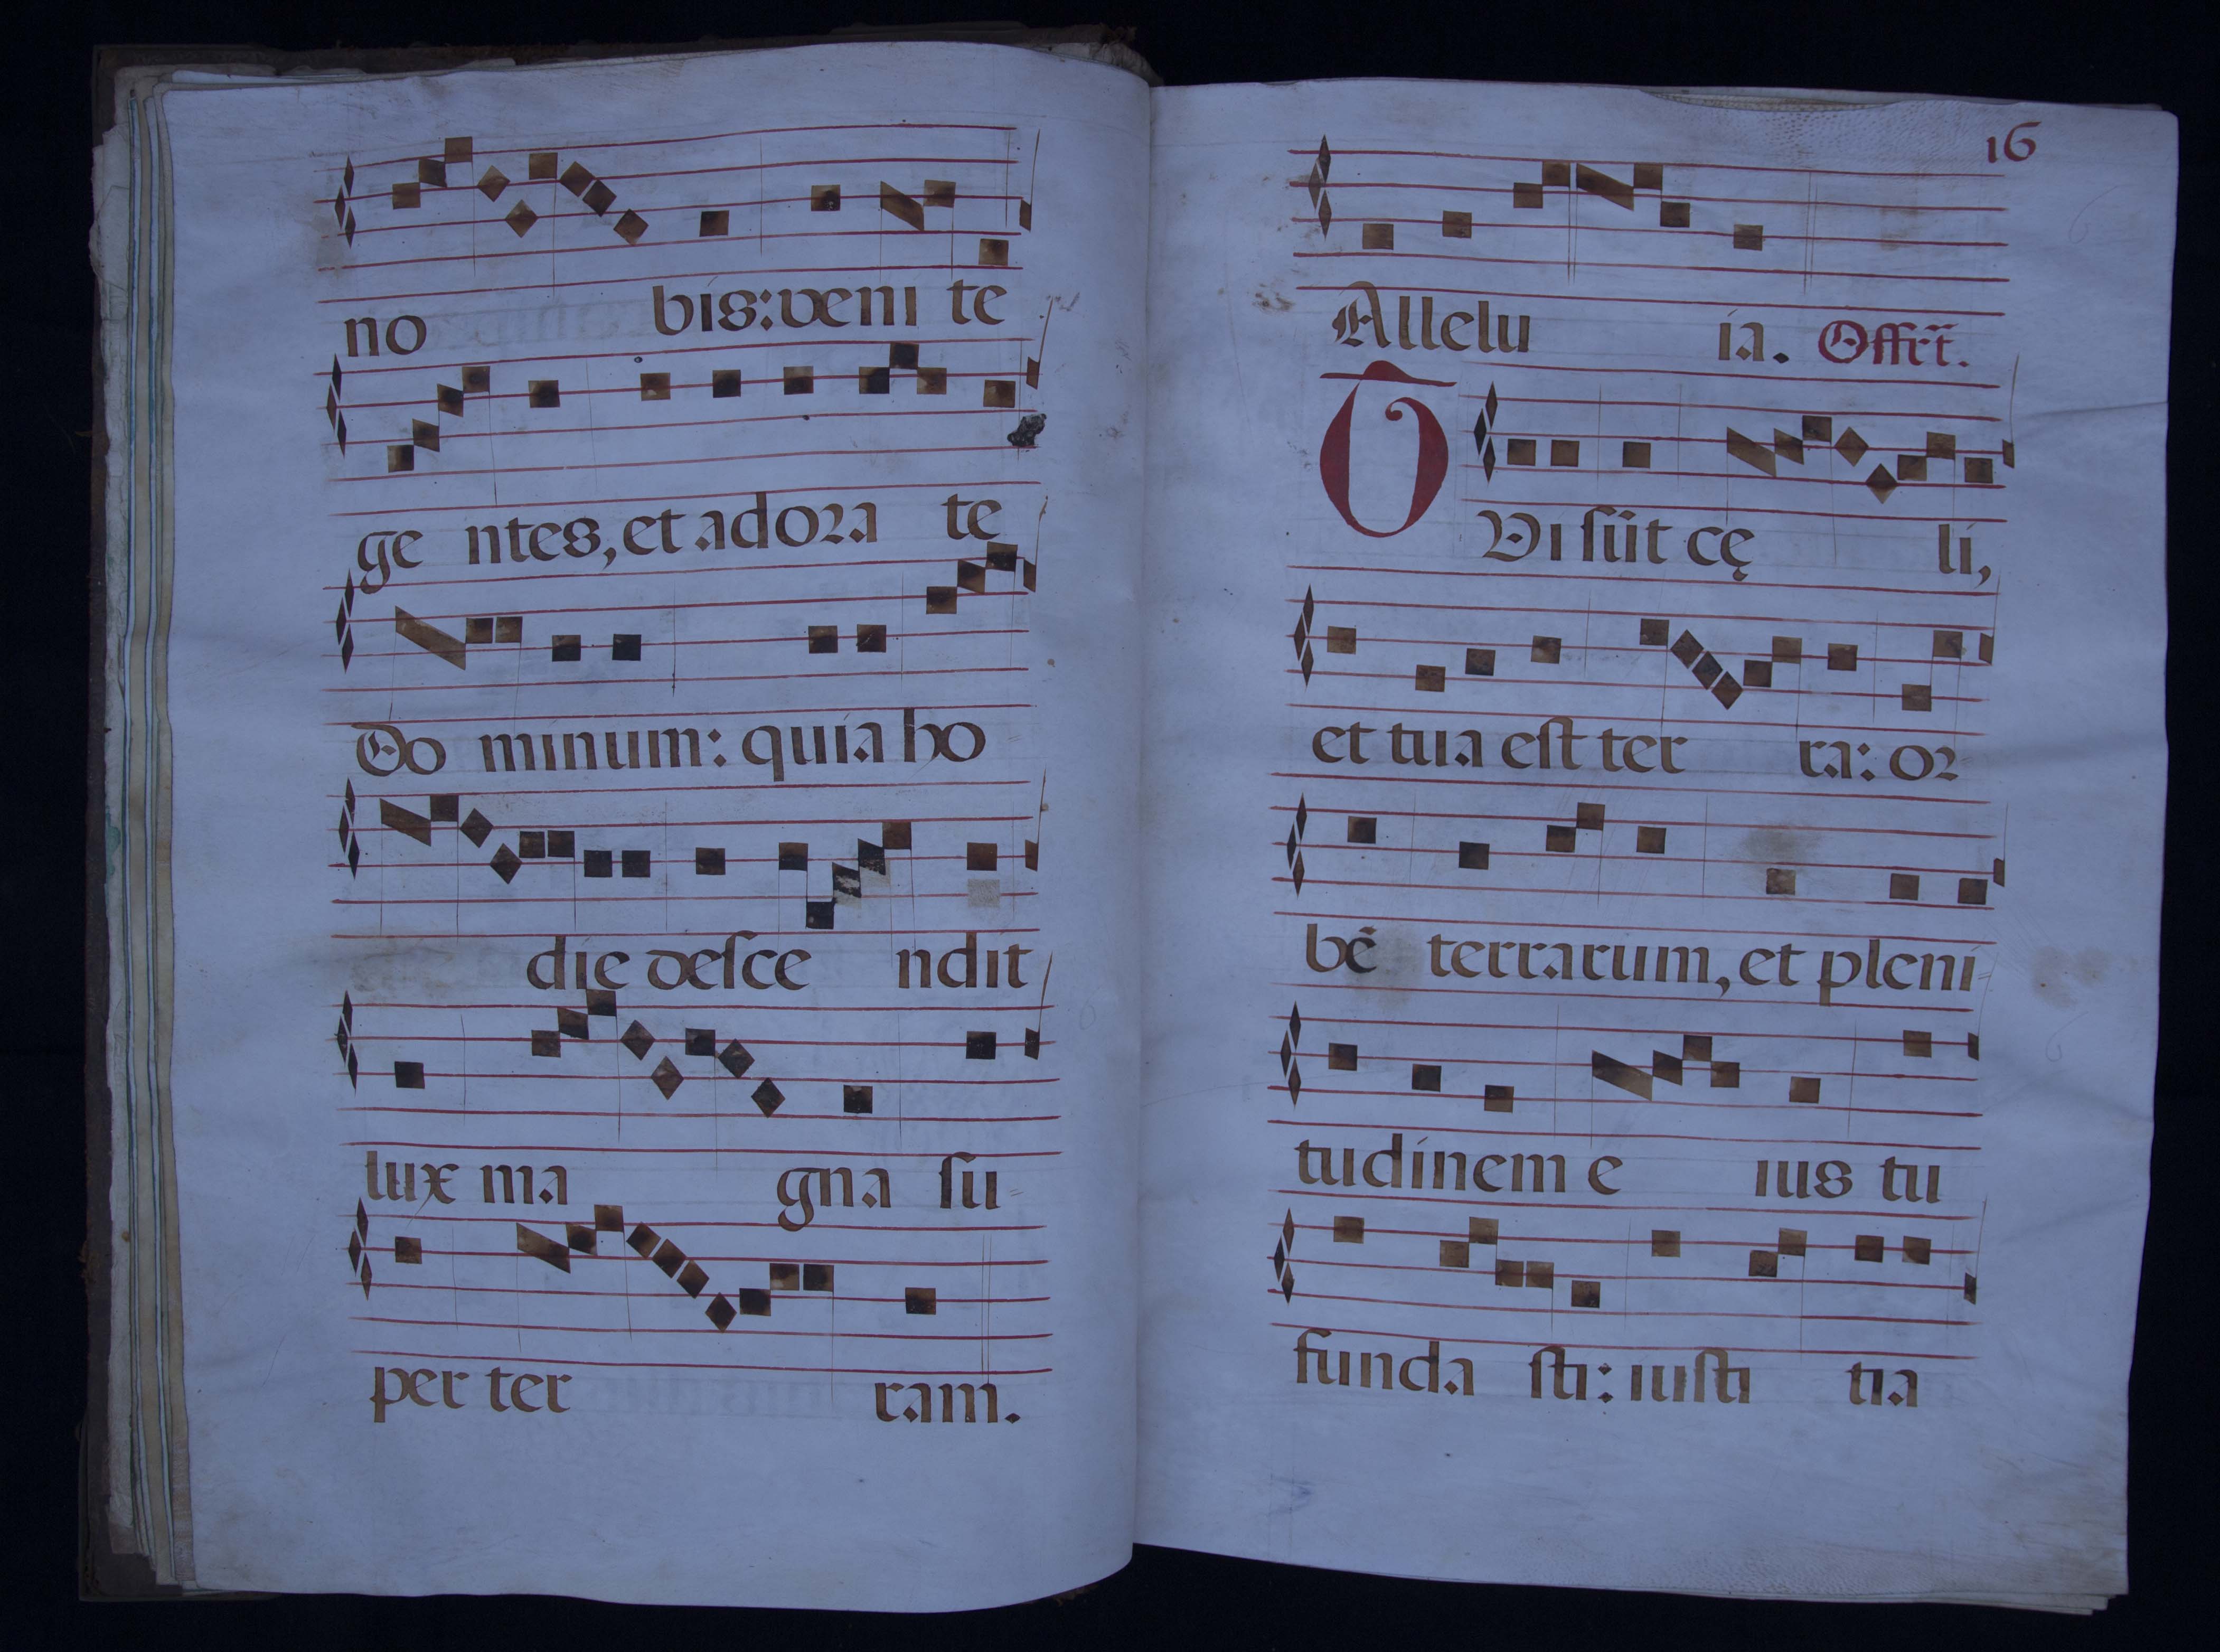 no bis: veni te
ge ntes, et adora te
Do minum: quia ho
die desce ndit
lux ma gna su
per ter ram.
16
Allelu ia. Offr̃t.
T̄Vi sũt cę li,
et tua est ter ra: or
bẽ terrarum, et pleni
tudinem e ius tu
funda sti: iusti tia